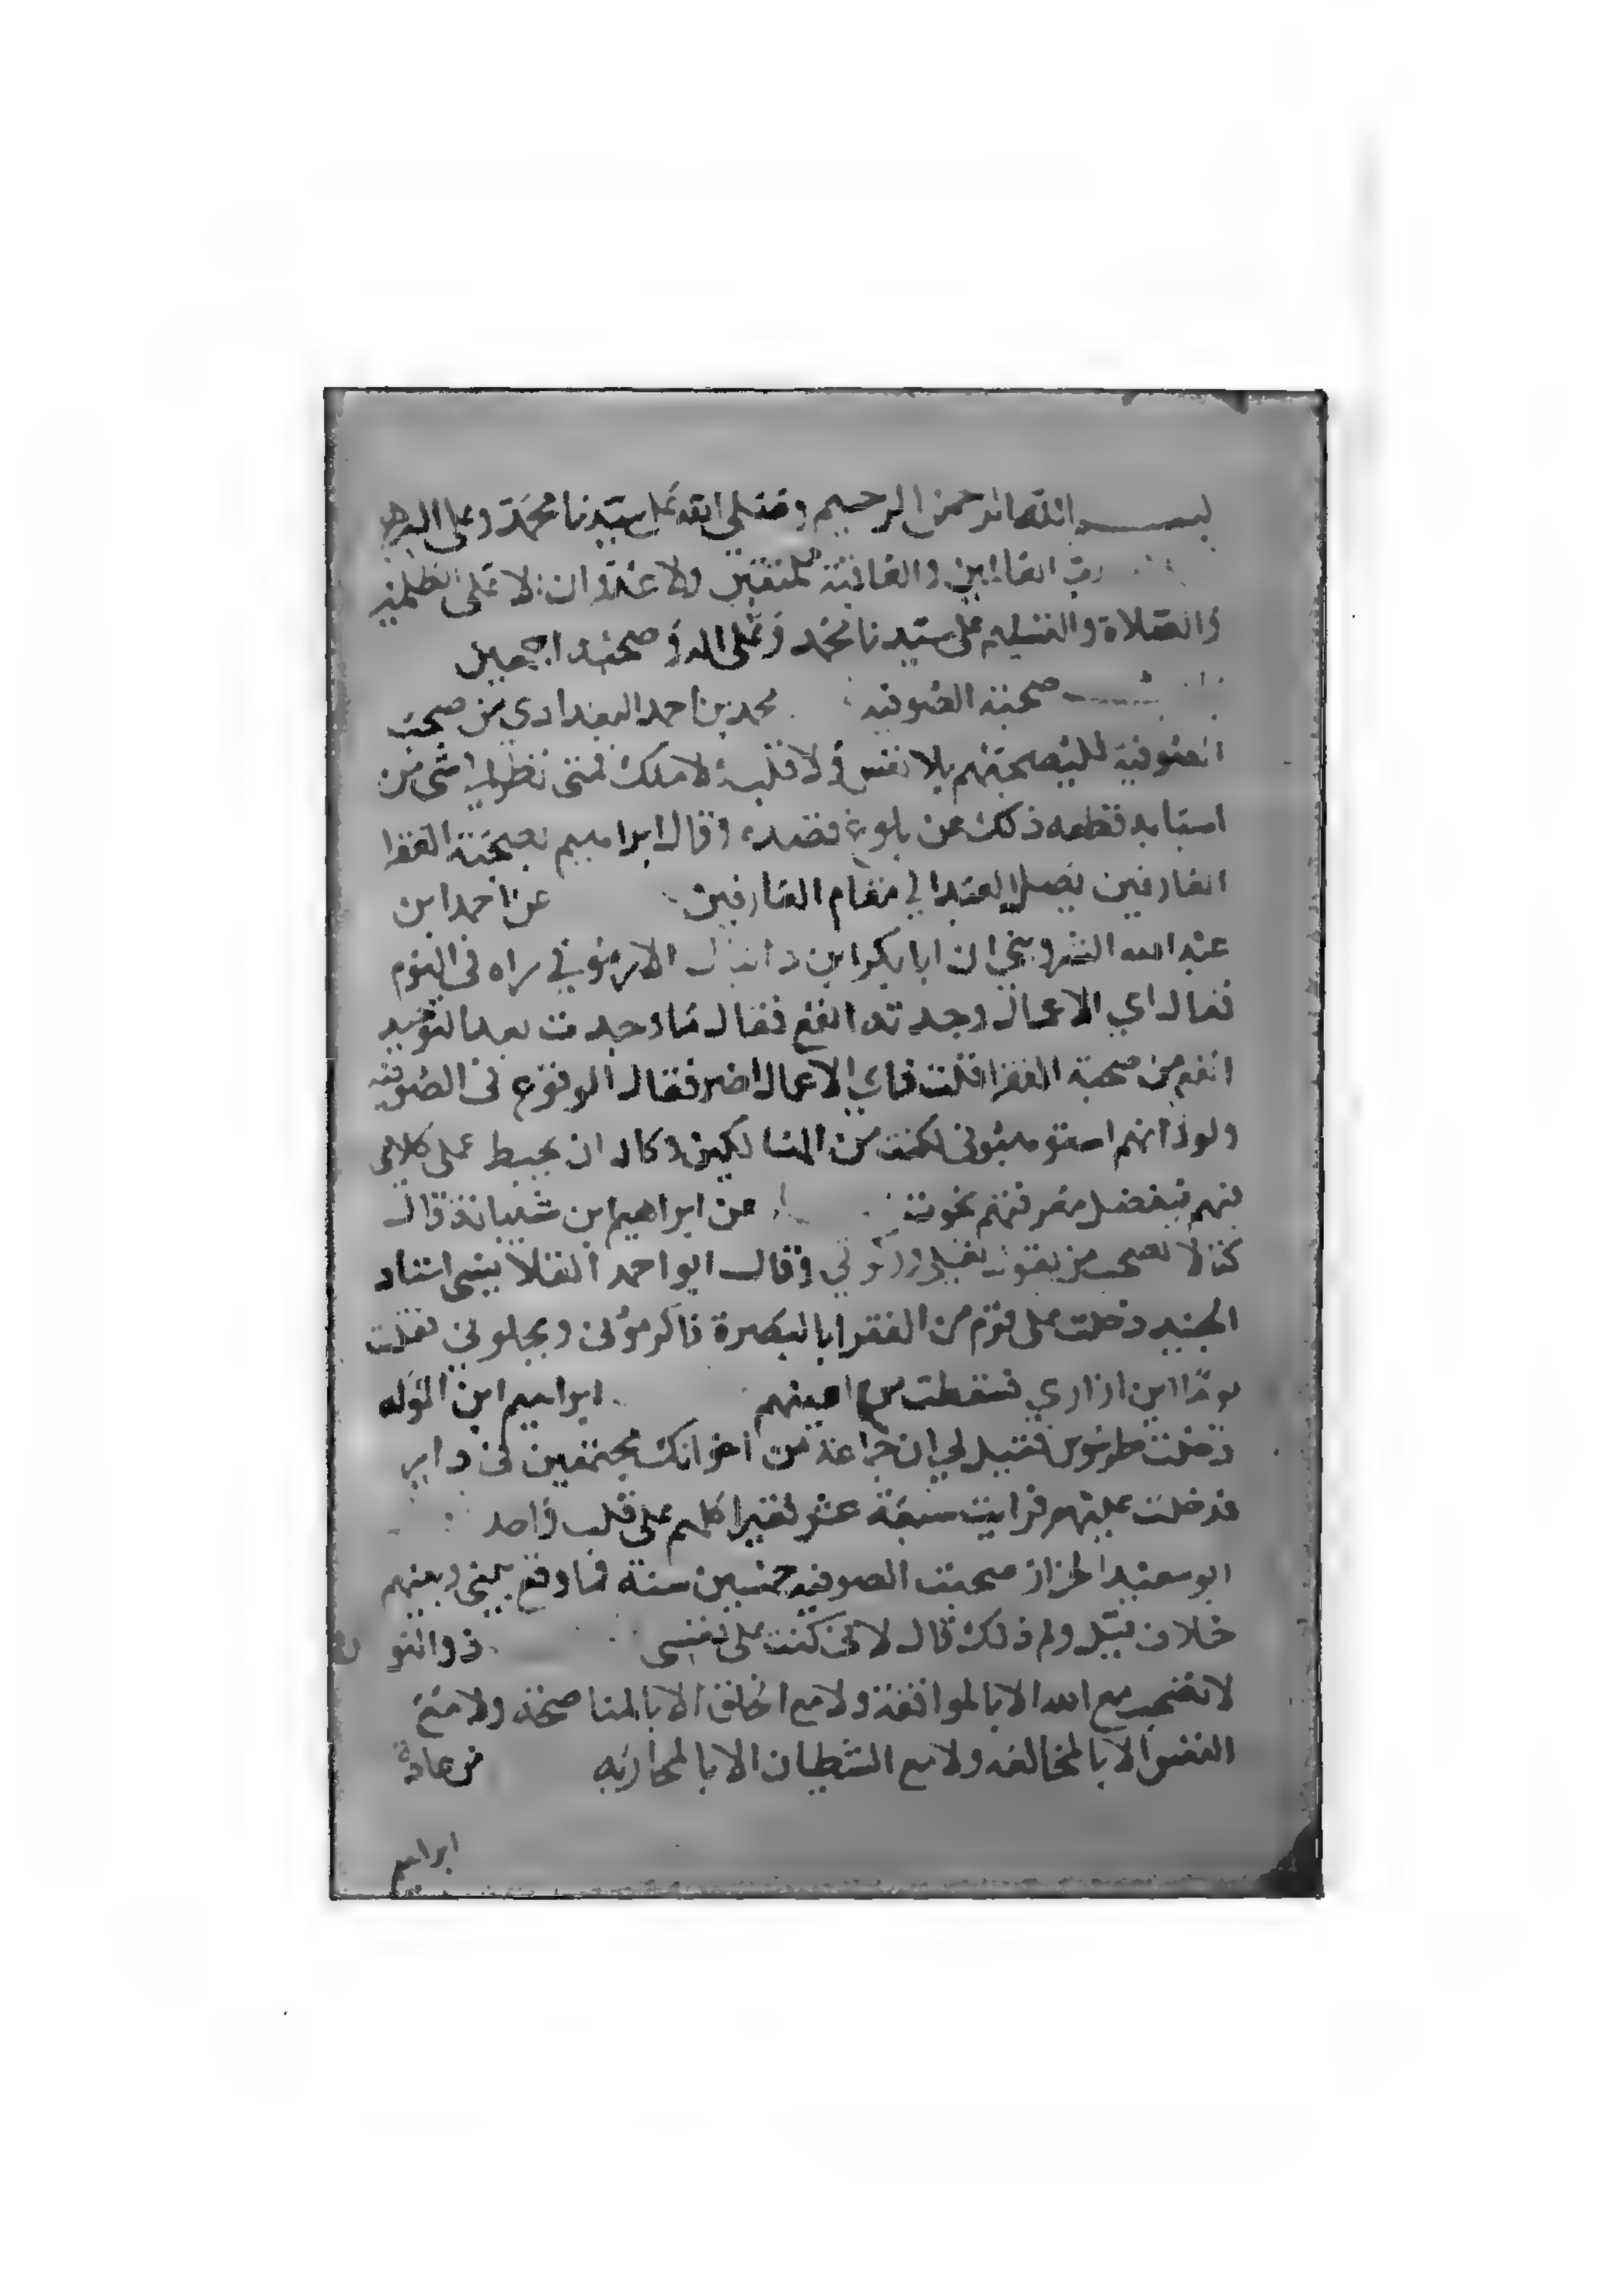 بسم الله الرحمن الرحيم وصلى الله على سيدنا محمد وعلى اله
رب العالمين والعاقبة للمتقين ولا عدوان الا على الظلمين
والصلاة والتسليم على سيدنا محمد وعلى اله وصحبه اجمعين
صحبة الصوفيه محمد بن احمد البغدادي من صحب
الصوفية فليصحبهم بلا نفس ولا قلب ولا ملك فمتى نظر الى شى من
اسبابه قطعه ذلك عن بلوغ قصده وقال ابراهيم بصحبة الفقرا
العارفين يصل العبد الي مقام العارفين عن احمد ابن
عبد الله الشرويني ان ابا بكر ابن دانيال الارموي راه في النوم
فقال اي الاعمال وجدته انفع فقال ما وجدت بعد التوحيد
انفع من صحبة الفقرا قلت فاي الاعمال اضر فقال الوقوع في الصوفيه
ولولا انهم استوهبوني لكنت من الهالكين وكاد ان يحبط عملى كلامي
فيهم فبفضل معرفتهم نجوت عن ابراهيم ابن شيبان قال
كنا لا نصحب من يقول نعلي وركوتي وقال ابو احمد القلانسي استاد
الجنيد دخلت على قوم من الفقرا بالبصرة فاكرموني وبجلوني فقلت
يوما اين ازاري فسقطت من اعينهم ابراهيم ابن المولد
دخلت طرسوس فقيل لي ان جماعة من اخوانك مجتمعين في دار
فدخلت عليهم فرايت سبعة عشر فقيرا كلهم على قلب واحد
ابو سعيد الخراز صحبت الصوفيه خمسين سنة فما وقع بيني وبينهم
خلاف قيل ولم ذلك قال لاني كنت على نفسي ذو النون
لا تصحب مع الله الا بالموافقة ولا مع الخلق الا بالمناصحة ولا مع
النفس الا بالمخالفه ولا مع الشيطان الا بالمحاربه من عادة
ابراهيم